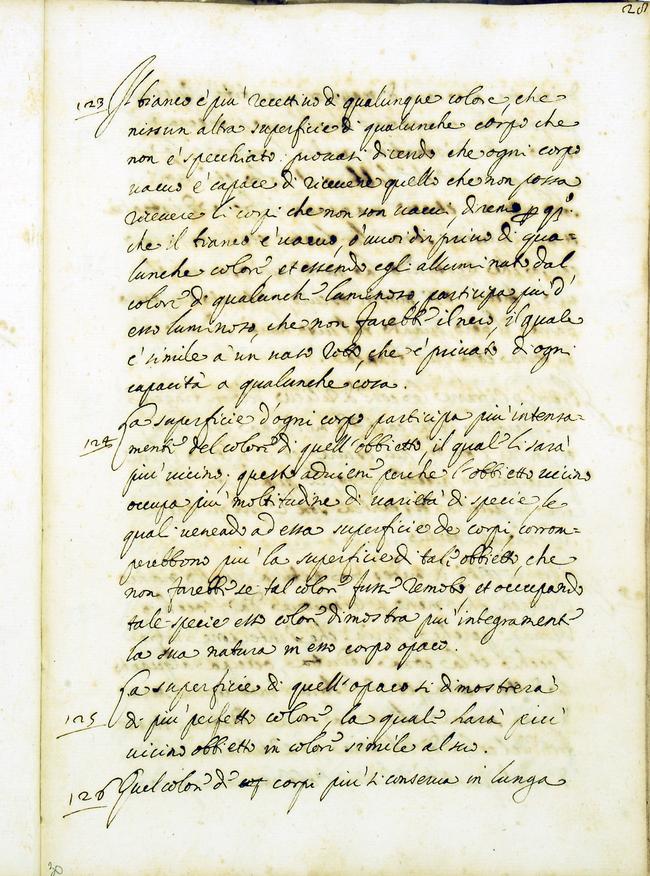 28
123 Il bianco è più recettivo di qualunque colore, che
nissun altra superficie di qualunche corpo che
non è specchiato: provasi dicendo che ogni corpo
vacuo è capace di ricevere quello che non possa
ricevere li corpi che non son vacui, diremo p q.º
che il bianco è vacuo, ò vuoi dir privo di qua=
lunche colore, et essendo egli alluminato dal
colore di qualunche luminoso, participa più d'
esso luminoso, che non farebbe il nero, il quale
è simile à un vaso rotto, che è privato di ogni
capacità a qualunche cosa.
124 La superficie d'ogni corpo participa più intensa=
mente del colore di quell'obbietto, il qual li sarà
più vicino; questo adviene perche l'obbietto vicino
occupa più moltitudine di varietà di specie, le
qual venendo ad essa superficie de corpi, corrom=
perebbono più la superficie di tale obbietto, che
non farebbe se tal colore fusse remoto et occupando
tale specie esso colore dimostra più integramente
la sua natura in esso corpo opaco.
La superficie di quell'opaco si dimostrerà
125 di più perfetto colore, la quale harà più
vicino obbietto in colore simile al suo.
126 Quel colore de corpi più si conserva in lunga
30